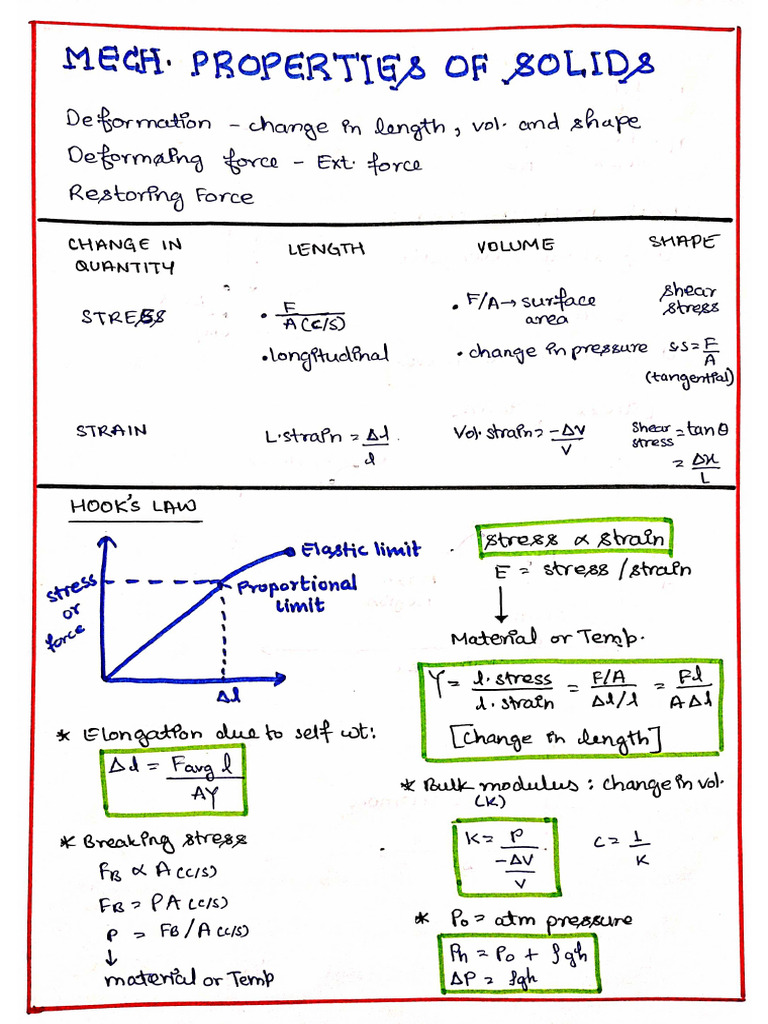 MECH. PROPERTIES OF SOLIDS
Deformation - change in length, vol. and shape
Deformaing force - Ext. force
Restoring Force
CHANGE IN QUANTITY LENGTH VOLUME SHAPE
STRESS
• F / A(c/s)
• longitudinal
• F/A → surface area
• change in pressure
shear stress
s.s = F/A
(tangential)
STRAIN
L. strain = Δl / l
Vol. strain = -ΔV / V
Shear stress = tan θ
= Δx / L
HOOK'S LAW
stress or force
Elastic limit
Proportional limit
Δl
stress ∝ strain
E = stress / strain
↓
Material or Temp.
Y = l. stress / l. strain = F/A / Δl/l = Fl / AΔl
[Change in length]
* Elongation due to self wt:
Δl = Favg l / AY
* Breaking stress
FB ∝ A (c/s)
FB = PA (c/s)
P = FB/A (c/s)
↓
material or Temp
* Bulk modulus : change in vol.
(K)
K = P / -ΔV/V
C = 1/K
* Po = atm pressure
Ph = Po + ρgh
ΔP = ρgh